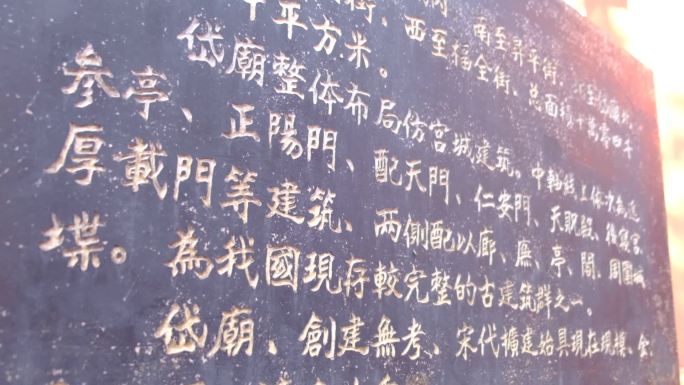 南至昇平街、
街、西至福全街、总面積十萬零四千
平方米。
岱廟整体布局仿宫城建筑。中軸线上依次為遥
参亭、正陽門、配天門、仁安門、天貺殿、後寢宮、
厚載門等建筑、两側配以廊、廡、亭、閣、周圍城
堞。為我國現存較完整的古建筑群之一。
岱廟、創建無考、宋代擴建始具現在現模、金